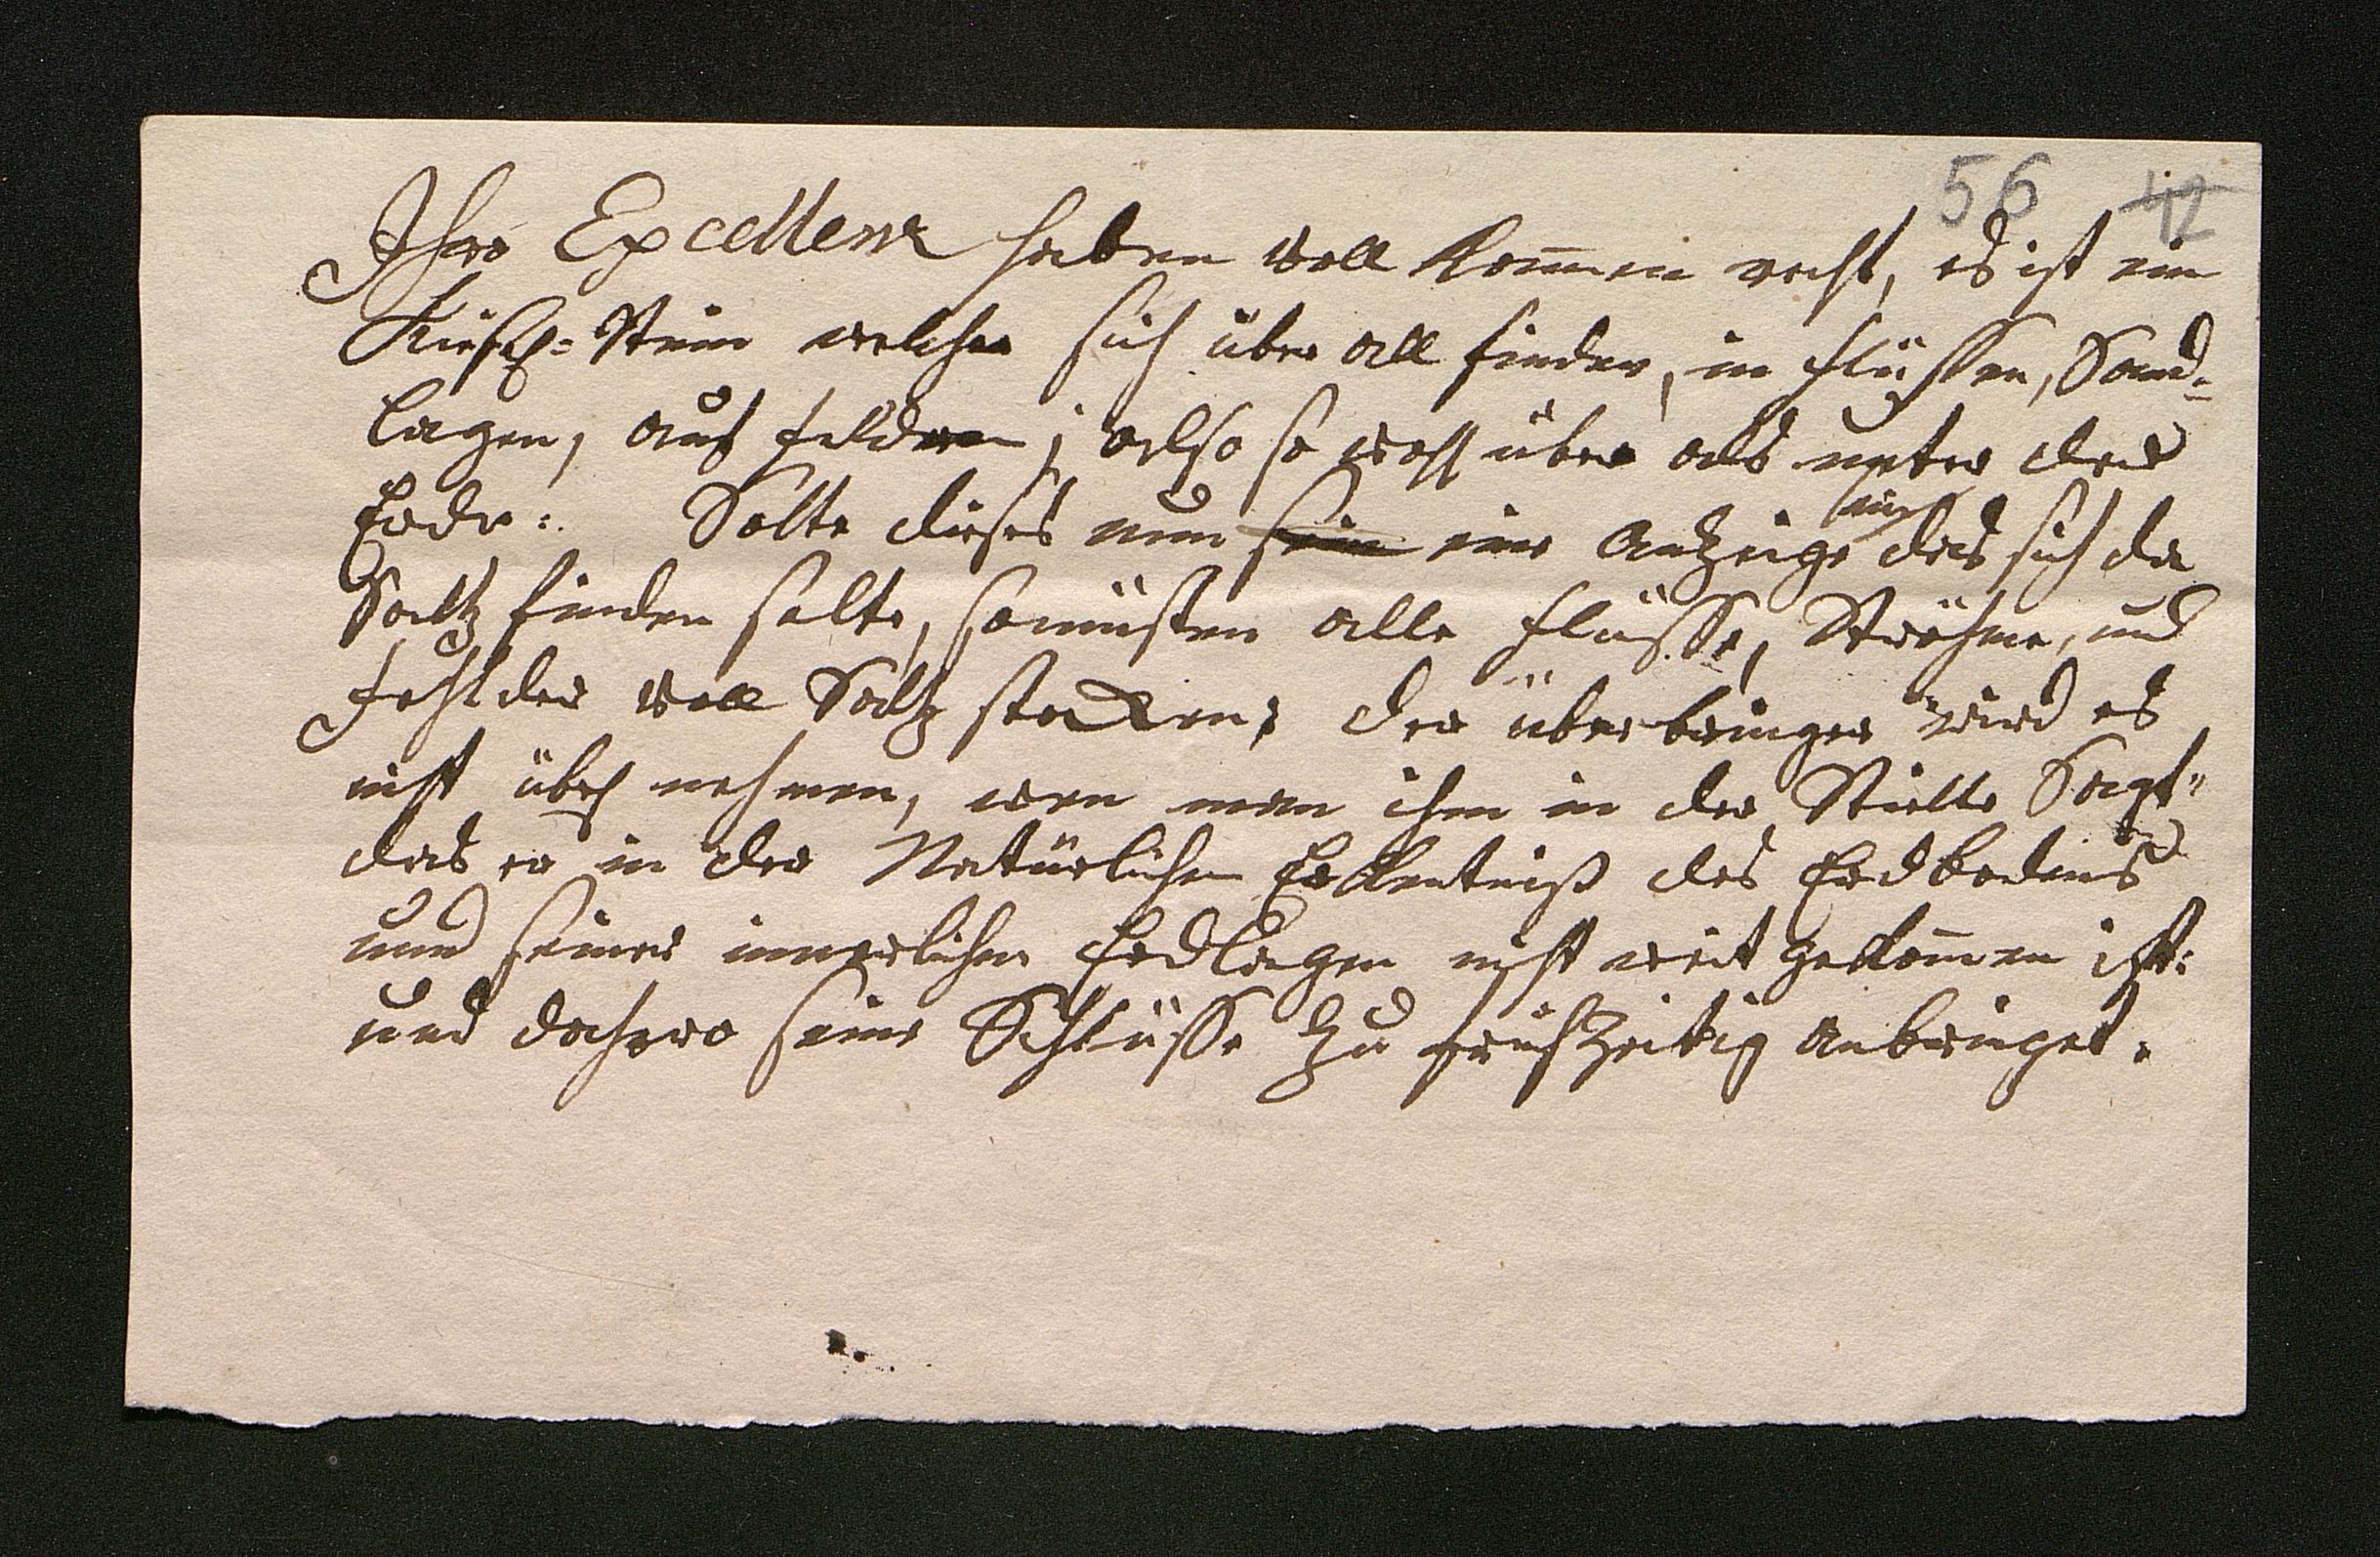 56 42
Ihro Excellenz haben voll kom̅en recht, es ist ein
Kiesel=Stein welcher sich über all findet, in Flüssen, Sand=
lagen, auf feldern; also so wohl über als unter der
Erde. Solte dieses nun sein eine Anzeige sein das sich da
Saltz finden solte, so müsten alle Flüsse, Ströhme, und
Fehlder voll Saltz stecken; der überbringer wird es
nicht übel nehmen, wen man ihm in der Stille Sagt"
das er in der Natürlichen Erkentniß des Erdbodens
und seiner innerlichen Erdlagen nicht weit gekom̅en ist:
und dahero seine Schlüsse zu frühzeitig anbringet.